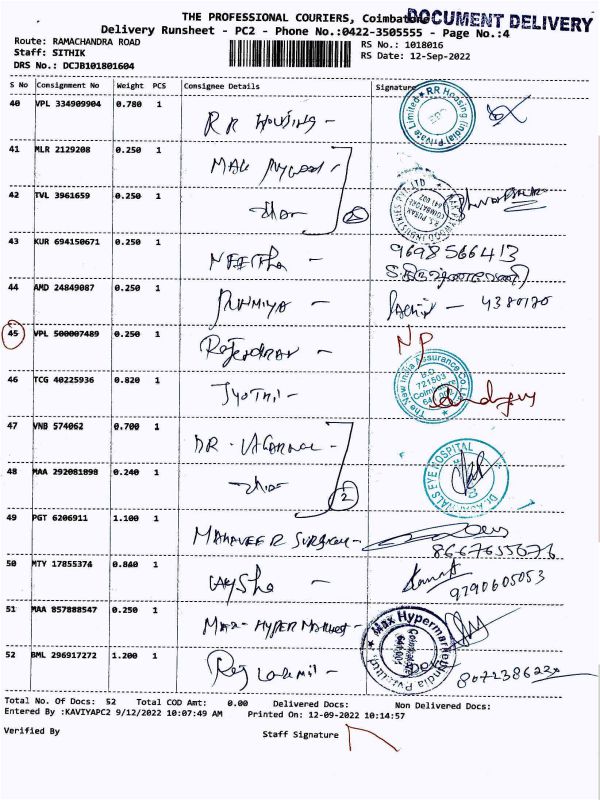 THE PROFESSIONAL COURIERS, Coimbatore
DOCUMENT DELIVERY
Delivery Runsheet - PC2 - Phone No.:0422-3505555 - Page No.:4
Route: RAMACHANDRA ROAD
RS No.: 1018016
Staff: SITHIK
RS Date: 12-Sep-2022
DRS No.: DCJB101801604
S No Consignment No Weight PCS Consignee Details Signature
40 VPL 334909904 0.780 1 RR Housing -
RR Housing (India) Private Limited
41 MLR 2129208 0.250 1
42 TVL 3961659 0.250 1
43 KUR 694150671 0.250 1 NEETHA - 9698566413
44 AMD 24849087 0.250 1 4380120
45 VPL 500007489 0.250 1 Rajendran - NP
46 TCG 40225936 0.820 1 Jyothi -
The New India Assurance Co. Ltd
721503
Coimbatore
47 VNB 574062 0.700 1 DR. AGARWAL -
48 MAA 292081898 0.240 1 2
EYE HOSPITAL
49 PGT 6206911 1.100 1 MAHAVEER SURGICAL - 8667655676
50 MTY 17855374 0.840 1 9790605053
51 MAA 857888547 0.250 1 Max - HYPER Market -
Max Hypermarket India Pvt. Ltd
52 BML 296917272 1.200 1 Raj Laxmi -
Total No. Of Docs: 52 Total COD Amt: 0.00 Delivered Docs: Non Delivered Docs:
Entered By :KAVIYAPC2 9/12/2022 10:07:49 AM Printed On: 12-09-2022 10:14:57
Verified By
Staff Signature